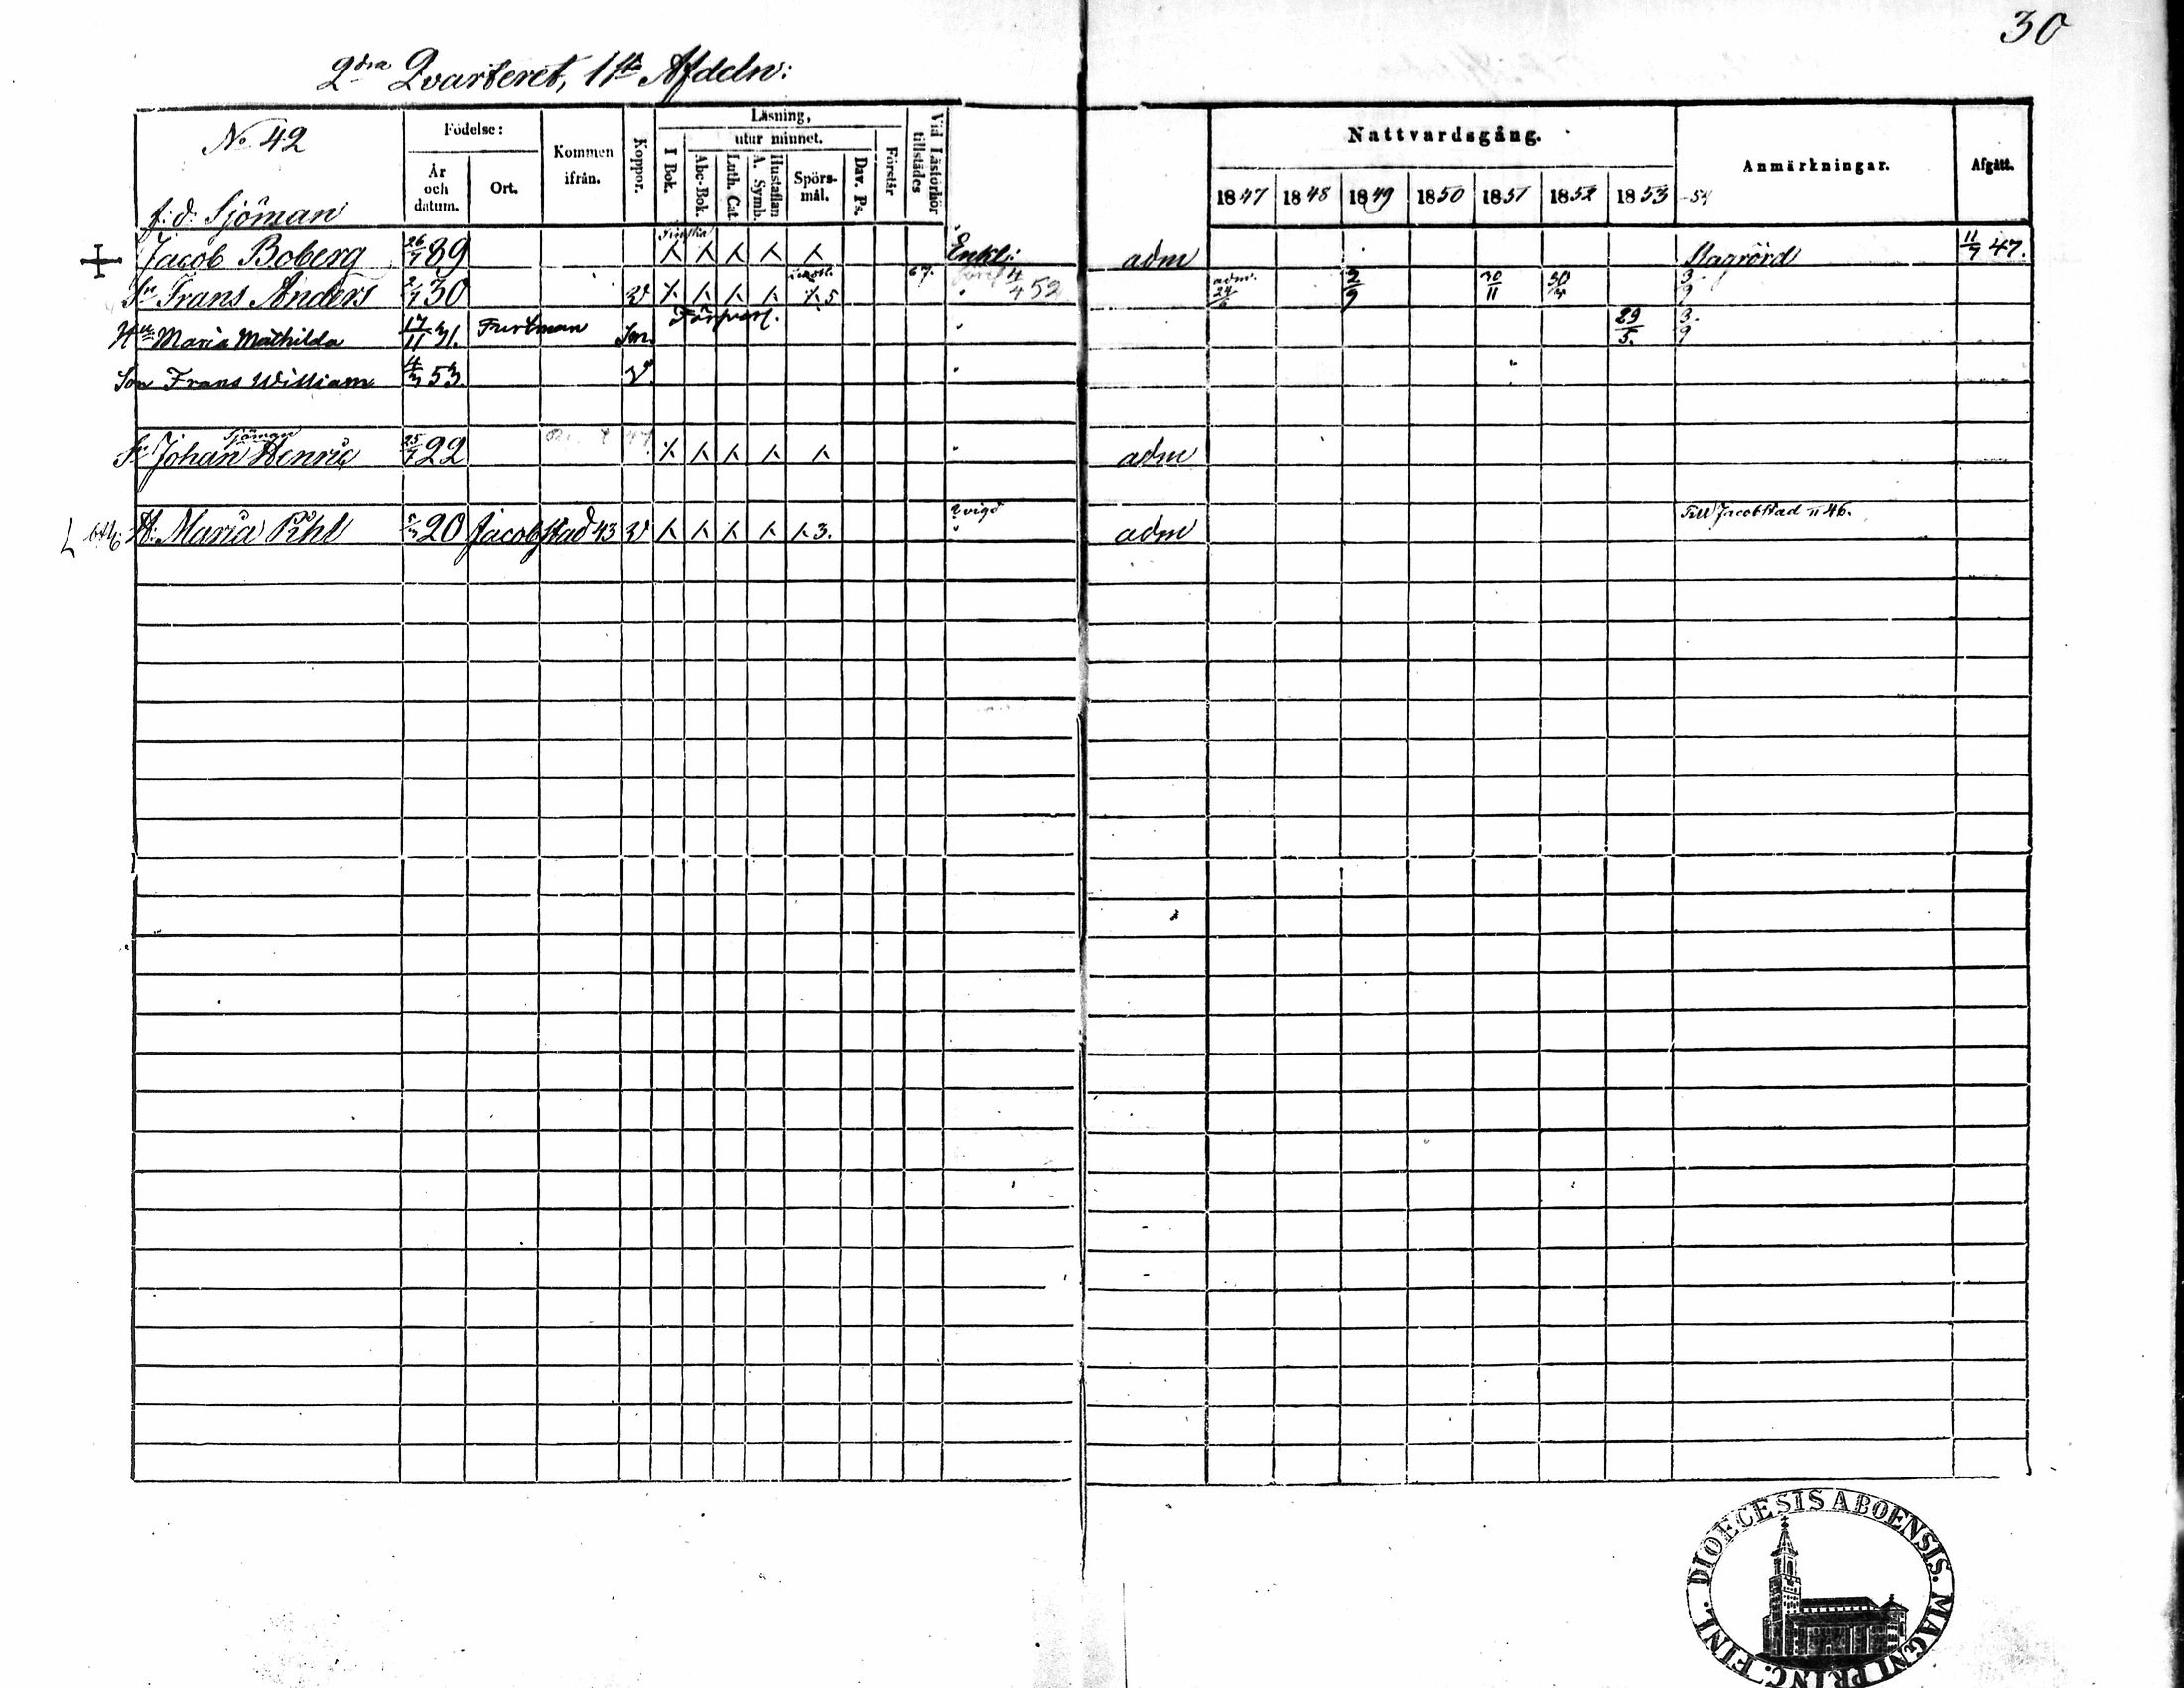 30
2dra Qvarteret, 1sta Afdeln:
No 42
Födelse:
År och datum.
Ort.
Kommen ifrån.
Koppor.
Läsning,
utur minnet.
I Bok.
Abc-Bok.
Luth. Cat
Hustaflan A. Symb.
Spörs-mål.
Dav. Ps.
Förstår
Vid Läsförhör tillstädes
Nattvardsgång.
1847 1848 1849 1850 1851 1852 1853 -54
Anmärkningar.
Afgått.
f. d. Sjöman
Jacob Boberg 26/7 89 Enkl: adm 11/7 47.
Sn Frans Anders 2/7 30 v 5 67. 4/4 52 adm. 24/6 2/9 30/11 3/9
Hu Maria Mathilda 17/11 31. 29/5. 3/9
Son Frans William 4/3 53. v.
Sjöman
Sn Johan Henric 25/7 22 adm
H. Maria Pihl 20 Jacobstad 43 v 3. adm Till Jacobstad 46.
DIOECESIS ABOENSIS. MAGNI PRINC. FINL.